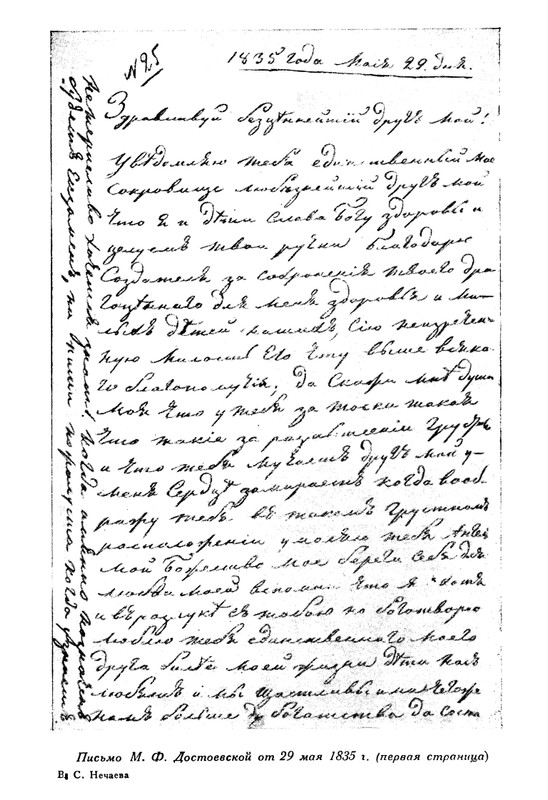 N 25
1835 года Маiя 29. дня.
Здравствуй безцѣннейшiй другъ мой!
Увѣдомляю тебя единственный мое
сокровище любезнейшiй другъ мой
что я и дѣти слава Богу здоровы и
целуемъ твои ручки благодарю
Создателя за сохраненiе твоего дра
гоцѣннаго для меня здоровья и ми-
лыхъ дѣтей нашихъ, сiю неизречен-
ную милость Его чту выше всяка-
го благополучiя; да скажи мнѣ душа
моя что у тебя за тоска такая
что такiе за размышленiи грустныя
и что тебя мучаетъ другъ мой у-
меня сердце замираетъ когда вооб-
ражу тебя въ такомъ грустномъ
расположенiи умоляю тебя Ангел
мой Божество мое береги себя для
любви моей вспомни что я хотя
и въ разлукѣ съ тобою но боготворю
люблю тебя единственнаго моего
друга болѣе моей жизни дѣти насъ
любятъ и мы щастливы ими чегоже
намъ больше до богатства да соста
нетерпеливо хочется знать! когда имянно назначенъ
будетъ Екзаменъ, напиши пожалуста когда
Письмо М. Ф. Достоевской от 29 мая 1835 г. (первая страница)
В. С. Нечаева